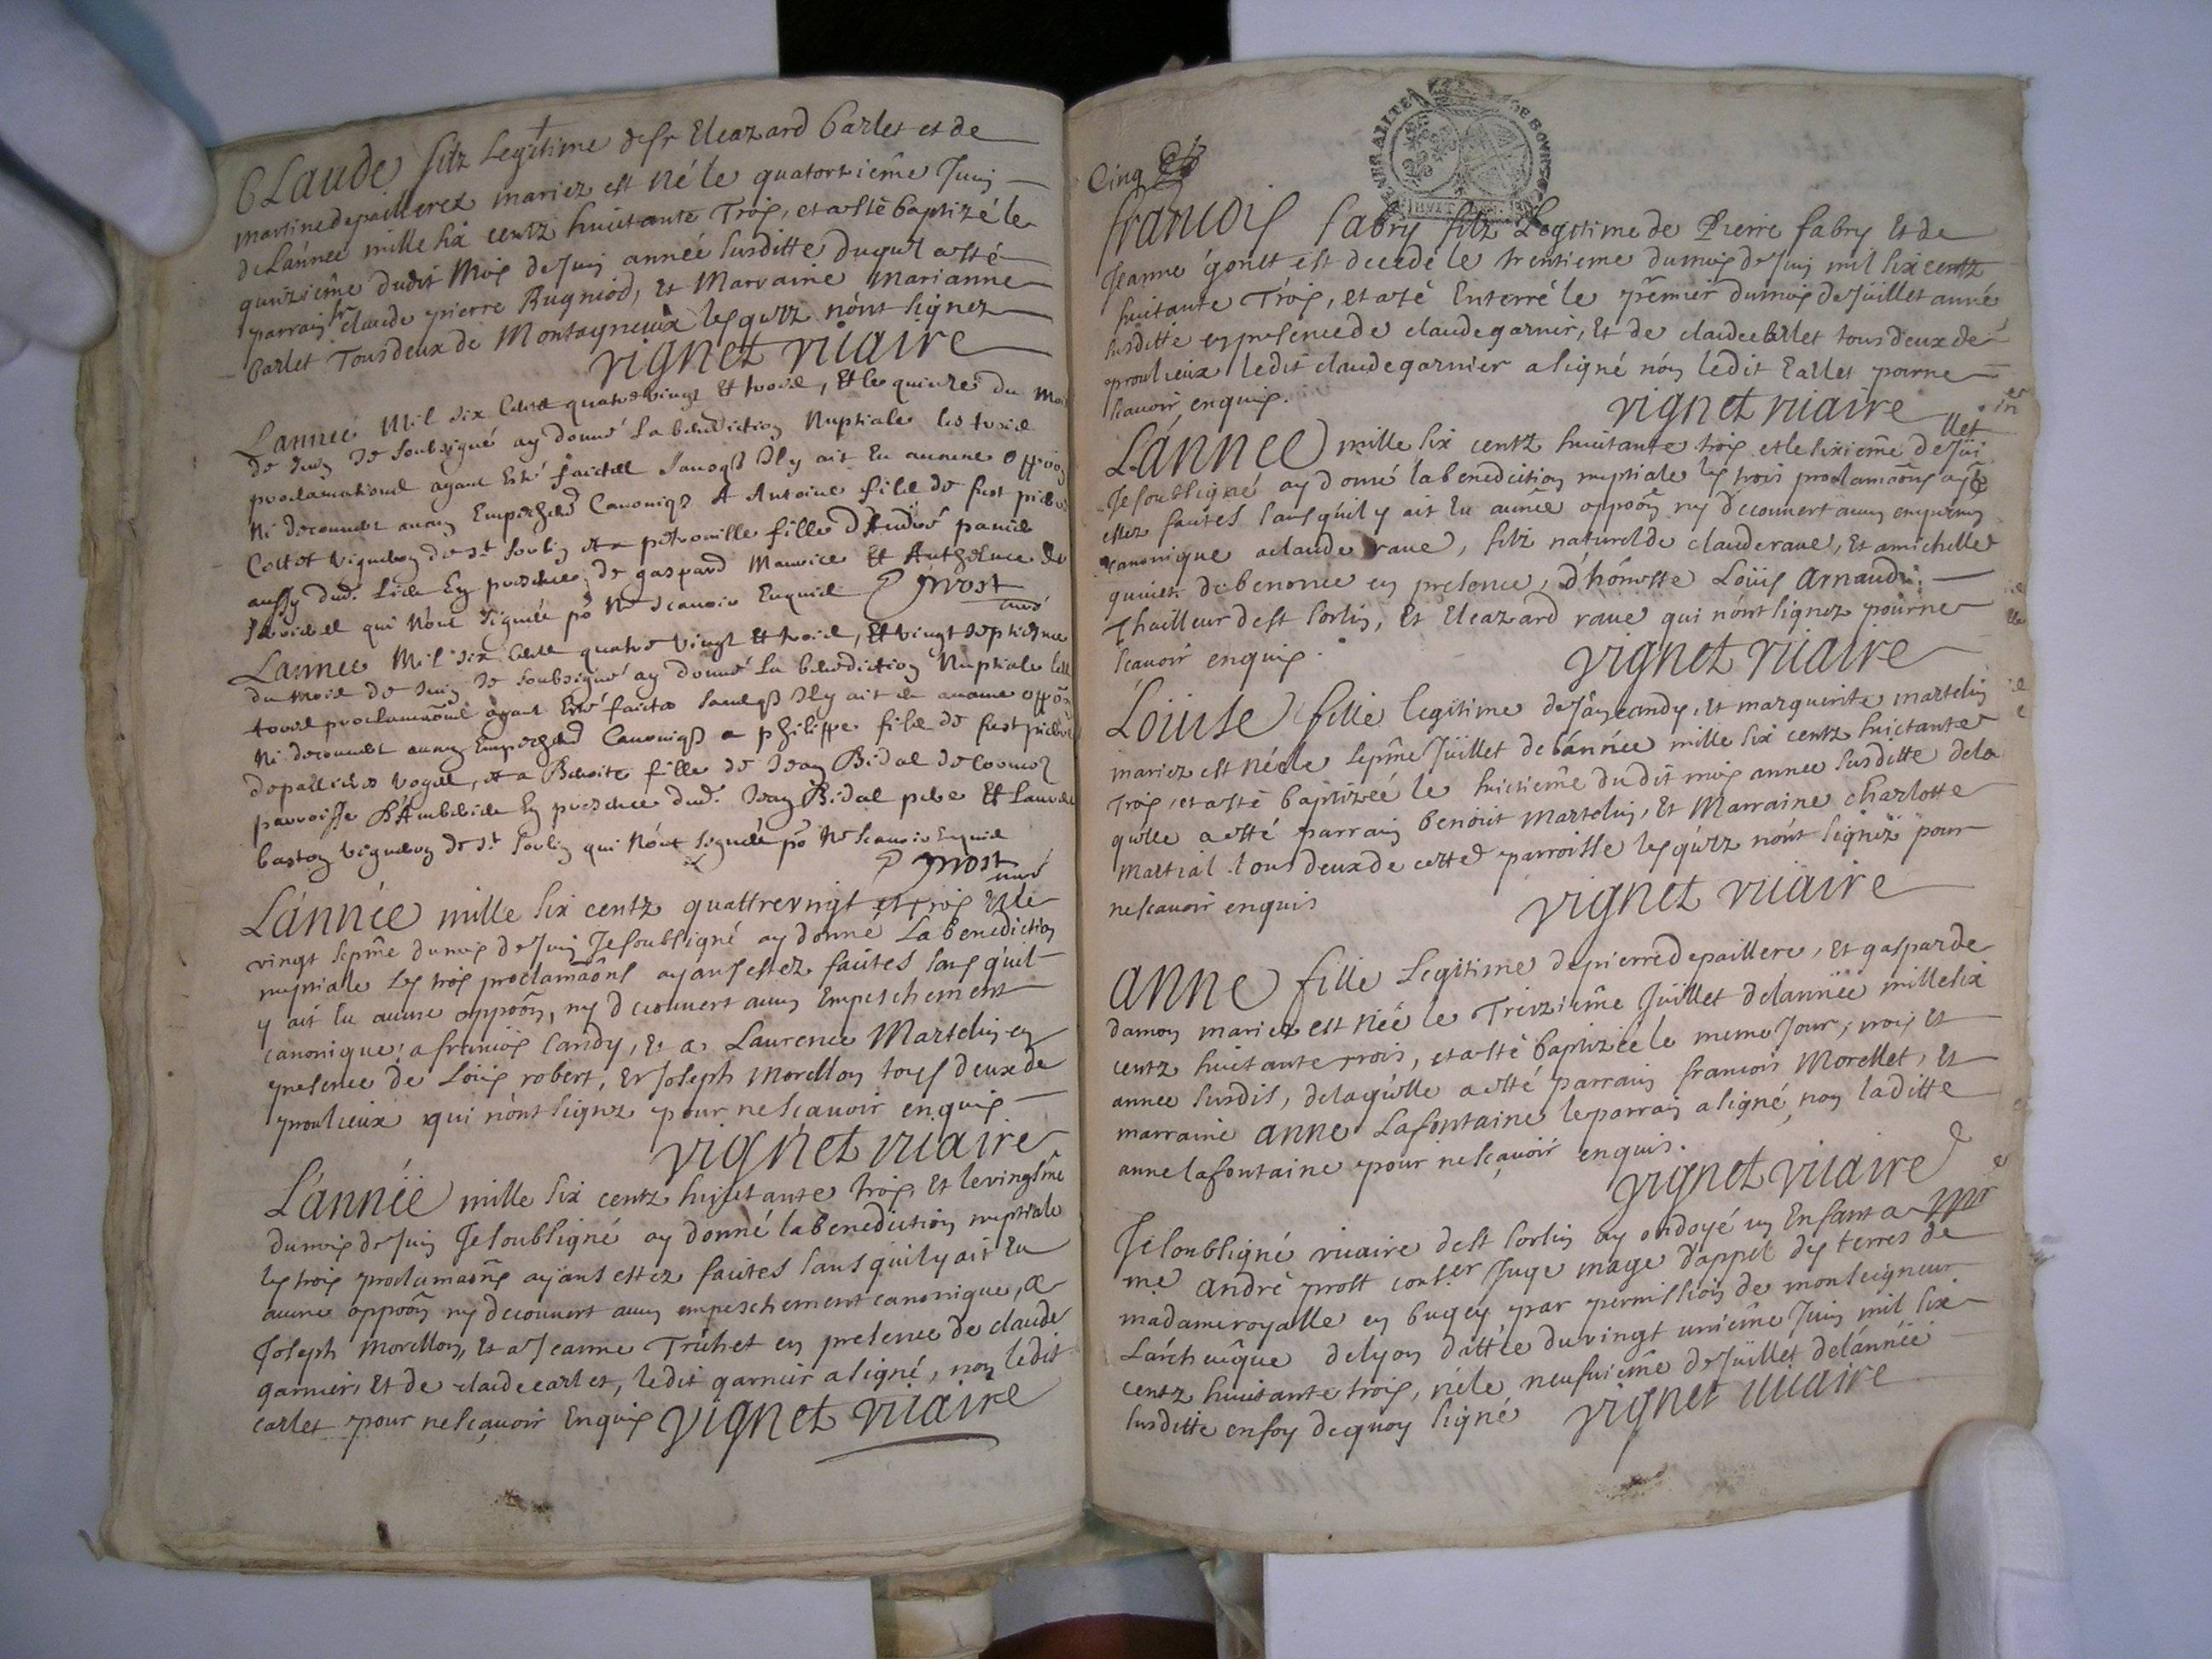 CLaude filz Legitime de sr Eleazard Carlet et de
martine depaillerez mariez est né le quatorsiéme Juin
de Lánnée mille six centz huictante Trois, et a esté baptizé le
quinziéme dudit Mois de Juin année susditte duquel a esté
parrain sr claude pierre Bugniod, et Marraine Marianne
Carlet Tous deux de Montagnieux lesquelz nónt signez
vignet viiaire
Lannée Mil six Cents quatre vingt et trois, Et le quinze du Mois
de Juin Je soubsigné ay donné La benediction Nuptiale les trois
proclamations ayant Esté faictes sans qs Il y ait Eu aucune oppõon
Ni decouvert aucun Empeched Canoniqz A Antoine filz de fust pierre
Cottet vigneron de st sorlin et a petronille fille d'Andre
aussy dud. Lieu En presence de gaspard Maurice Et Anthelme
qui Nónt signés põ Ne scavoir Enquis Prost
curé
Lannée Mil six Cents quatre vingt Et trois, Et vingt septiesme
du mois de Juin Je soubsigné ay donné La benediction Nuptiale les
trois proclamaõns ayant Esté faictes sans qs Il y ait eu aucune oppõn
Ni decouvert aucun Empeched Canoniqz a philippe filz de fust pierre
depallieres vogue, et a Benoite fille de Jean Bidal de
parroisse D'Ambleieu En presence dud. Jean Bidal pere Et Laurent
baston vigneron de st Sorlin qui Nónt signés põ Ne scavoir Enquis
Prost
curé
Lánnée mille six centz quattrevingt et trois Et le
vingt sepme du mois de Juin Je soubsigné ay donné La benediction
nuptiale les trois proclamaõns ayans estez faites sans quil
y ait eu aucune oppoõn, ny decouvert aucun Empeschement
canonique, a francois Candy, Et a Laurence Martelin en
presence de Loüis robert, Et Joseph Morellon tous deux de
proulieux qui nónt signez pour ne scavoir enquis
vignet viiaire
Lánnée mille six centz huictante trois, Et le vingtme
du mois de Juin Je soubsigné ay donné la benediction nuptiale
les trois proclamaõns ayans estez faites sans quil y ait eu
aucune oppoõn ny decouvert aucun empeschement canonique, a
Joseph morellon, Et a Jeanne Trichet en presence de claude
garnier, Et de claude carlet, ledit garnier a signé, non ledit
carlet pour ne scavoir Enquis vignet viiaire
Cinq
francois fabry filz Legitime de Pierre fabry Et de
Jeanne gonet est decede le trentieme du mois de Juin mil six centz
huitante Trois, et a esté Enterré le premier du mois de Juillet anné
susditte en presence de claude garnier, Et de claude Carlet tous deux de
proulieux ledit claude garnier a signé nón ledit Carlet pour ne
scavoir, enquis.
vignet viiaire
Lánnée mille six centz huictante trois et le sixieme de Jui
llet
Je soubsigné ay donné la benediction nuptiale les trois proclamaõns ayãs
estez faites sans quil y ait eu aucune oppoõn ny decouvert aucun
canonique a claude raue, filz naturel de claude raue, Et a michelle
quinet de benonce en presence, d'hónneste Loüis Arnaud
Thailleur de st Sorlin, Et Eleazard raue qui nónt signez pour ne
scavoir enquis.
vignet viiaire
Loüise fille legitime de Jan candy, et marguerite martelin
mariez est née le sepme Juillet de lánnée mille six centz huictante
Trois, et a esté baptizéé le huictieme du dit mois annee susditte de la
quelle a esté parrain benoist martelin, Et Marraine charlotte
martial tous deux de cette parroisse lesquelz nónt signez pour
ne scavoir enquis
vignet viiaire
anne fille Legitime de pierre depaillere, Et gasparde
damon mariez est née le Treizieme Juillet de lannéé mille six
centz huictante trois, et a esté baptizéé le meme Jour, mois et
annee susdis, de laquelle a esté parrain francois Morellet, Et
marraine anne Lafontaine le parrain a signé, non laditte
anne lafontaine pour ne scavoir enquis.
vignet viiaire
Je soubsigné viiaire de st sorlin ay ondoyé un Enfant a
me andré prost conser Juge mage d'appel des terres de
madame royalle en bugey, par permission de monseigneur
Lárcheuêque de lyon dattée du vingt unieme Juin mil six
centz huictante trois, né le neufuieme de Juillet de lánnéé
susditte en foy de quoy signé vignet viiaire